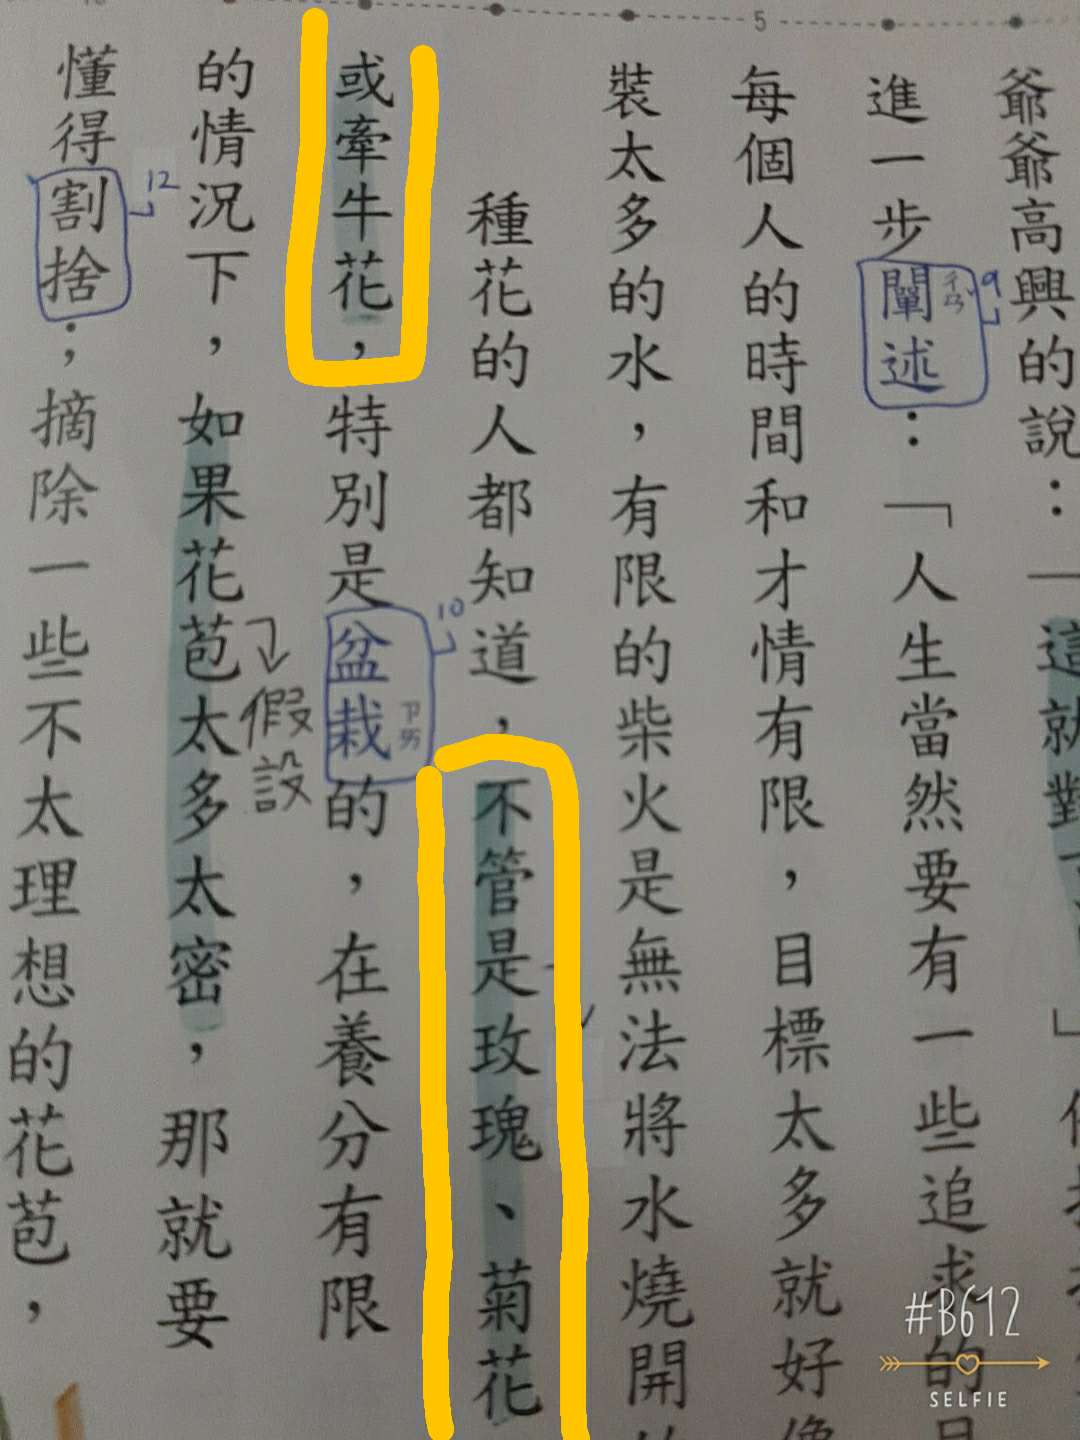 5
爺爺高興的說：「這就對了
進一步闡述：「人生當然要有一些追求的
每個人的時間和才情有限，目標太多就好像
裝太多的水，有限的柴火是無法將水燒開的
種花的人都知道，不管是玫瑰、菊花
或牽牛花，特別是盆栽的，在養分有限
的情況下，如果花苞太多太密，那就要
懂得割捨；摘除一些不太理想的花苞，
9
ㄔㄢˇ
10
ㄗㄞ
假設
12
#B612
SELFIE